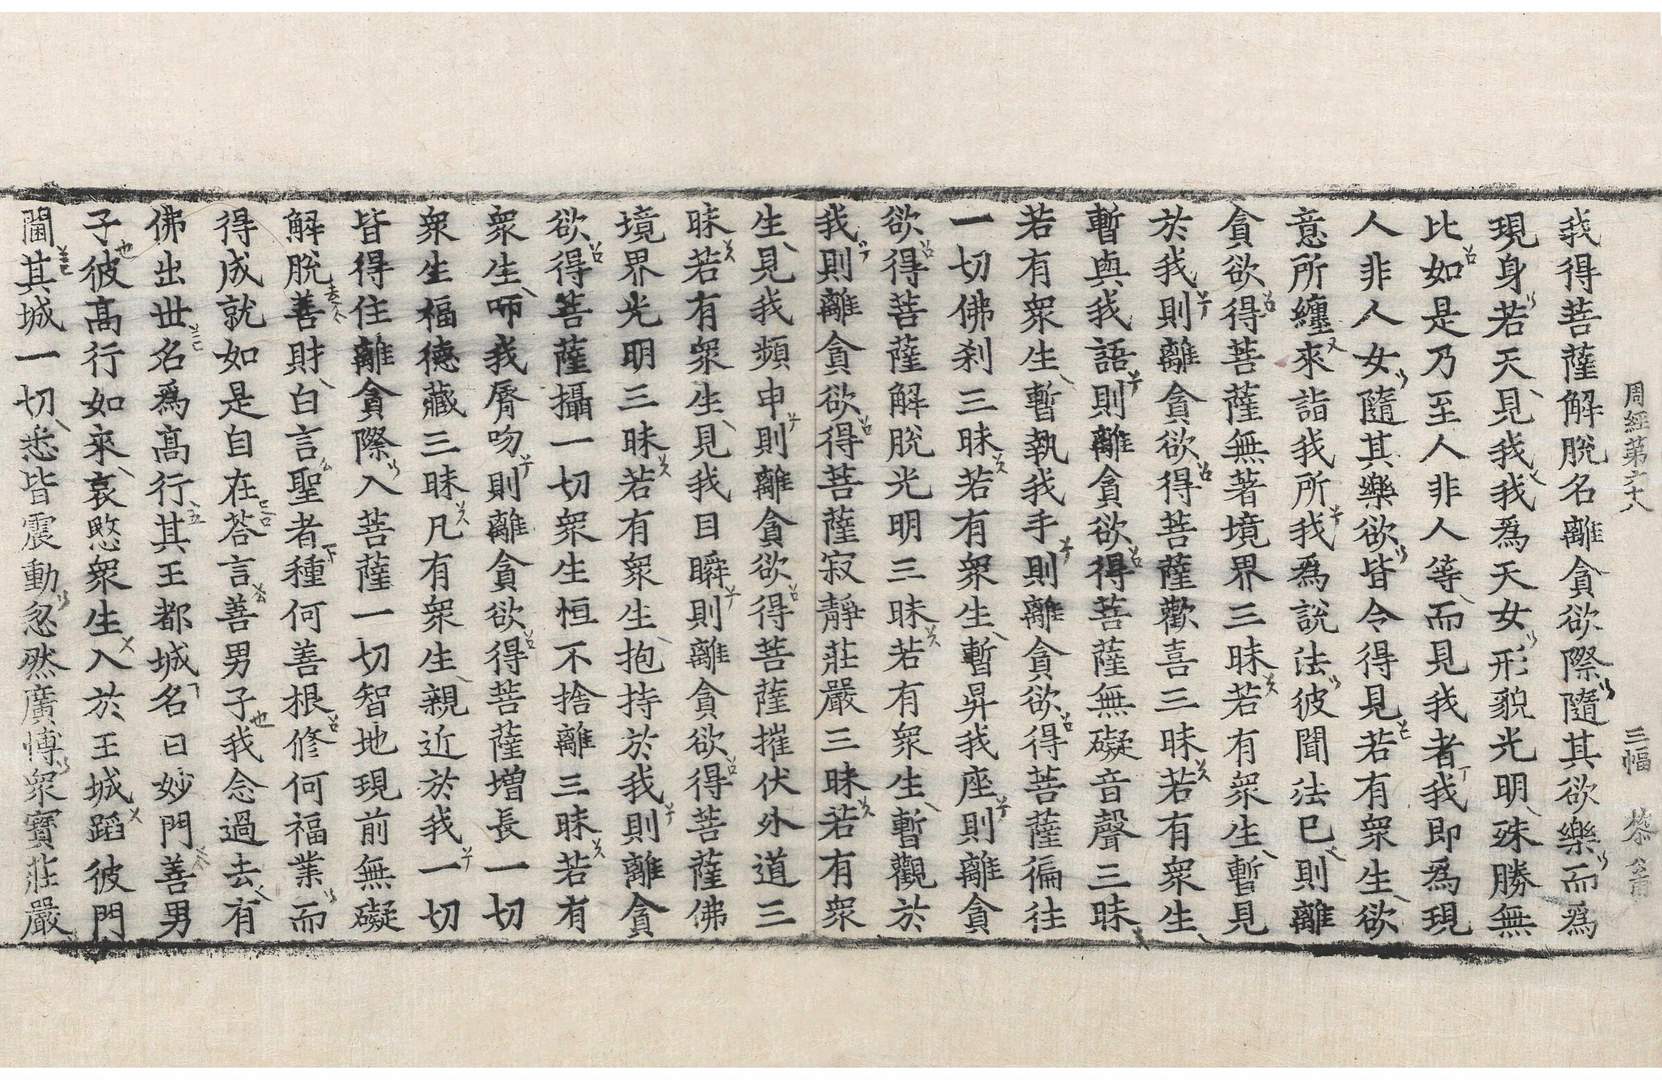 周經第六十八 三幅
我得菩薩解脱名離貪欲際隨其欲樂而爲
現身若天見我我爲天女形貌光明殊勝無
比如是乃至人非人等而見我者我即爲現
人非人女隨其樂欲皆令得見若有衆生欲
意所纏來詣我所我爲說法彼聞法已則離
貪欲得菩薩無著境界三昧若有衆生暫見
於我則離貪欲得菩薩歡喜三昧若有衆生
暫與我語則離貪欲得菩薩無礙音聲三昧
若有衆生暫執我手則離貪欲得菩薩徧往
一切佛刹三昧若有衆生暫昇我座則離貪
欲得菩薩解脱光明三昧若有衆生暫觀於
我則離貪欲得菩薩寂靜莊嚴三昧若有衆
生見我頻申則離貪欲得菩薩摧伏外道三
昧若有衆生見我目瞬則離貪欲得菩薩佛
境界光明三昧若有衆生抱持於我則離貪
欲得菩薩攝一切衆生恒不捨離三昧若有
衆生咂我脣吻則離貪欲得菩薩增長一切
衆生福德藏三昧凡有衆生親近於我一切
皆得住離貪際入菩薩一切智地現前無礙
解脱善財白言聖者種何善根修何福業而
得成就如是自在荅言善男子我念過去有
佛出世名爲高行其王都城名曰妙門善男
子彼高行如來哀愍衆生入於王城蹈彼門
閫其城一切悉皆震動忽然廣博衆寶莊嚴